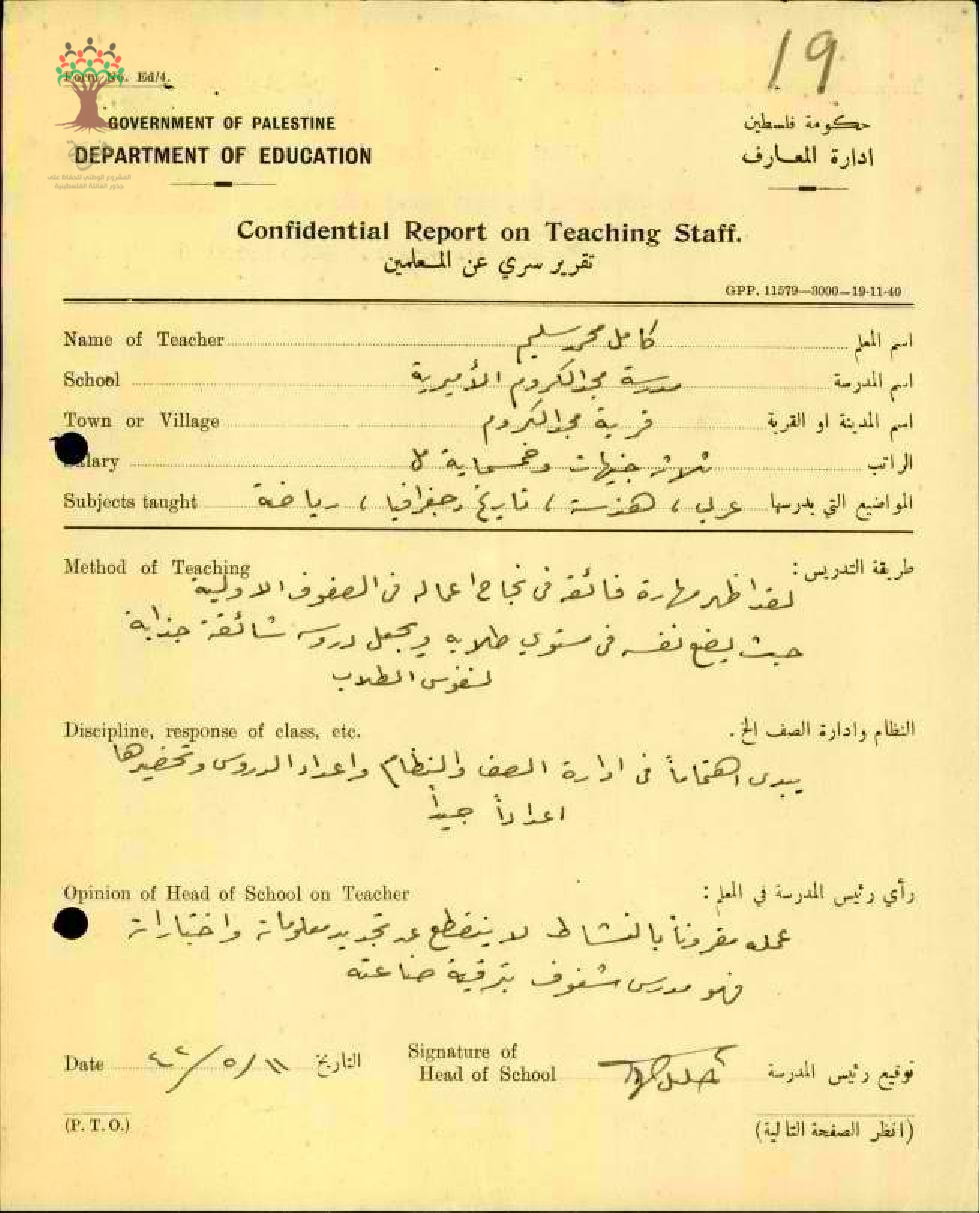 19
Form No. Ed/4.
GOVERNMENT OF PALESTINE
حكومة فلسطين
DEPARTMENT OF EDUCATION
ادارة المعارف
المشروع الوطني للحفاظ على
جذور العائلة الفلسطينية
Confidential Report on Teaching Staff.
تقرير سري عن المعلمين
GPP. 11579—3000—19-11-40
Name of Teacher كامل محمد سليم اسم المعلم
School مدرسة مجد الكروم الأميرية اسم المدرسة
Town or Village قرية مجد الكروم اسم المدينة او القرية
Salary ثلاث جنيهات وخمسماية مل الراتب
Subjects taught عربي، هندسة، تاريخ وجغرافيا، رياضة المواضيع التي يدرسها
Method of Teaching طريقة التدريس:
لقد اظهر مهارة فائقة في نجاح اعماله في الصفوف الاولية
حيث يضع نفسه في مستوي طلابه ويجعل دروسه شائقة جذابة
لنفوس الطلاب
Discipline, response of class, etc. النظام وادارة الصف الخ.
يبدي اهتماماً في ادارة الصف والنظام واعداد الدروس وتحضيرها
اعداداً جيداً
Opinion of Head of School on Teacher رأي رئيس المدرسة في المعلم:
عمله مقروناً بالنشاط لا ينقطع عن تجديد معلوماته واختباراته
فهو مدرس شغوف بترقية صناعته
Date ٤٢/٥/١١ التاريخ
Signature of
Head of School توقيع رئيس المدرسة
(P. T. O.) (انظر الصفحة التالية)